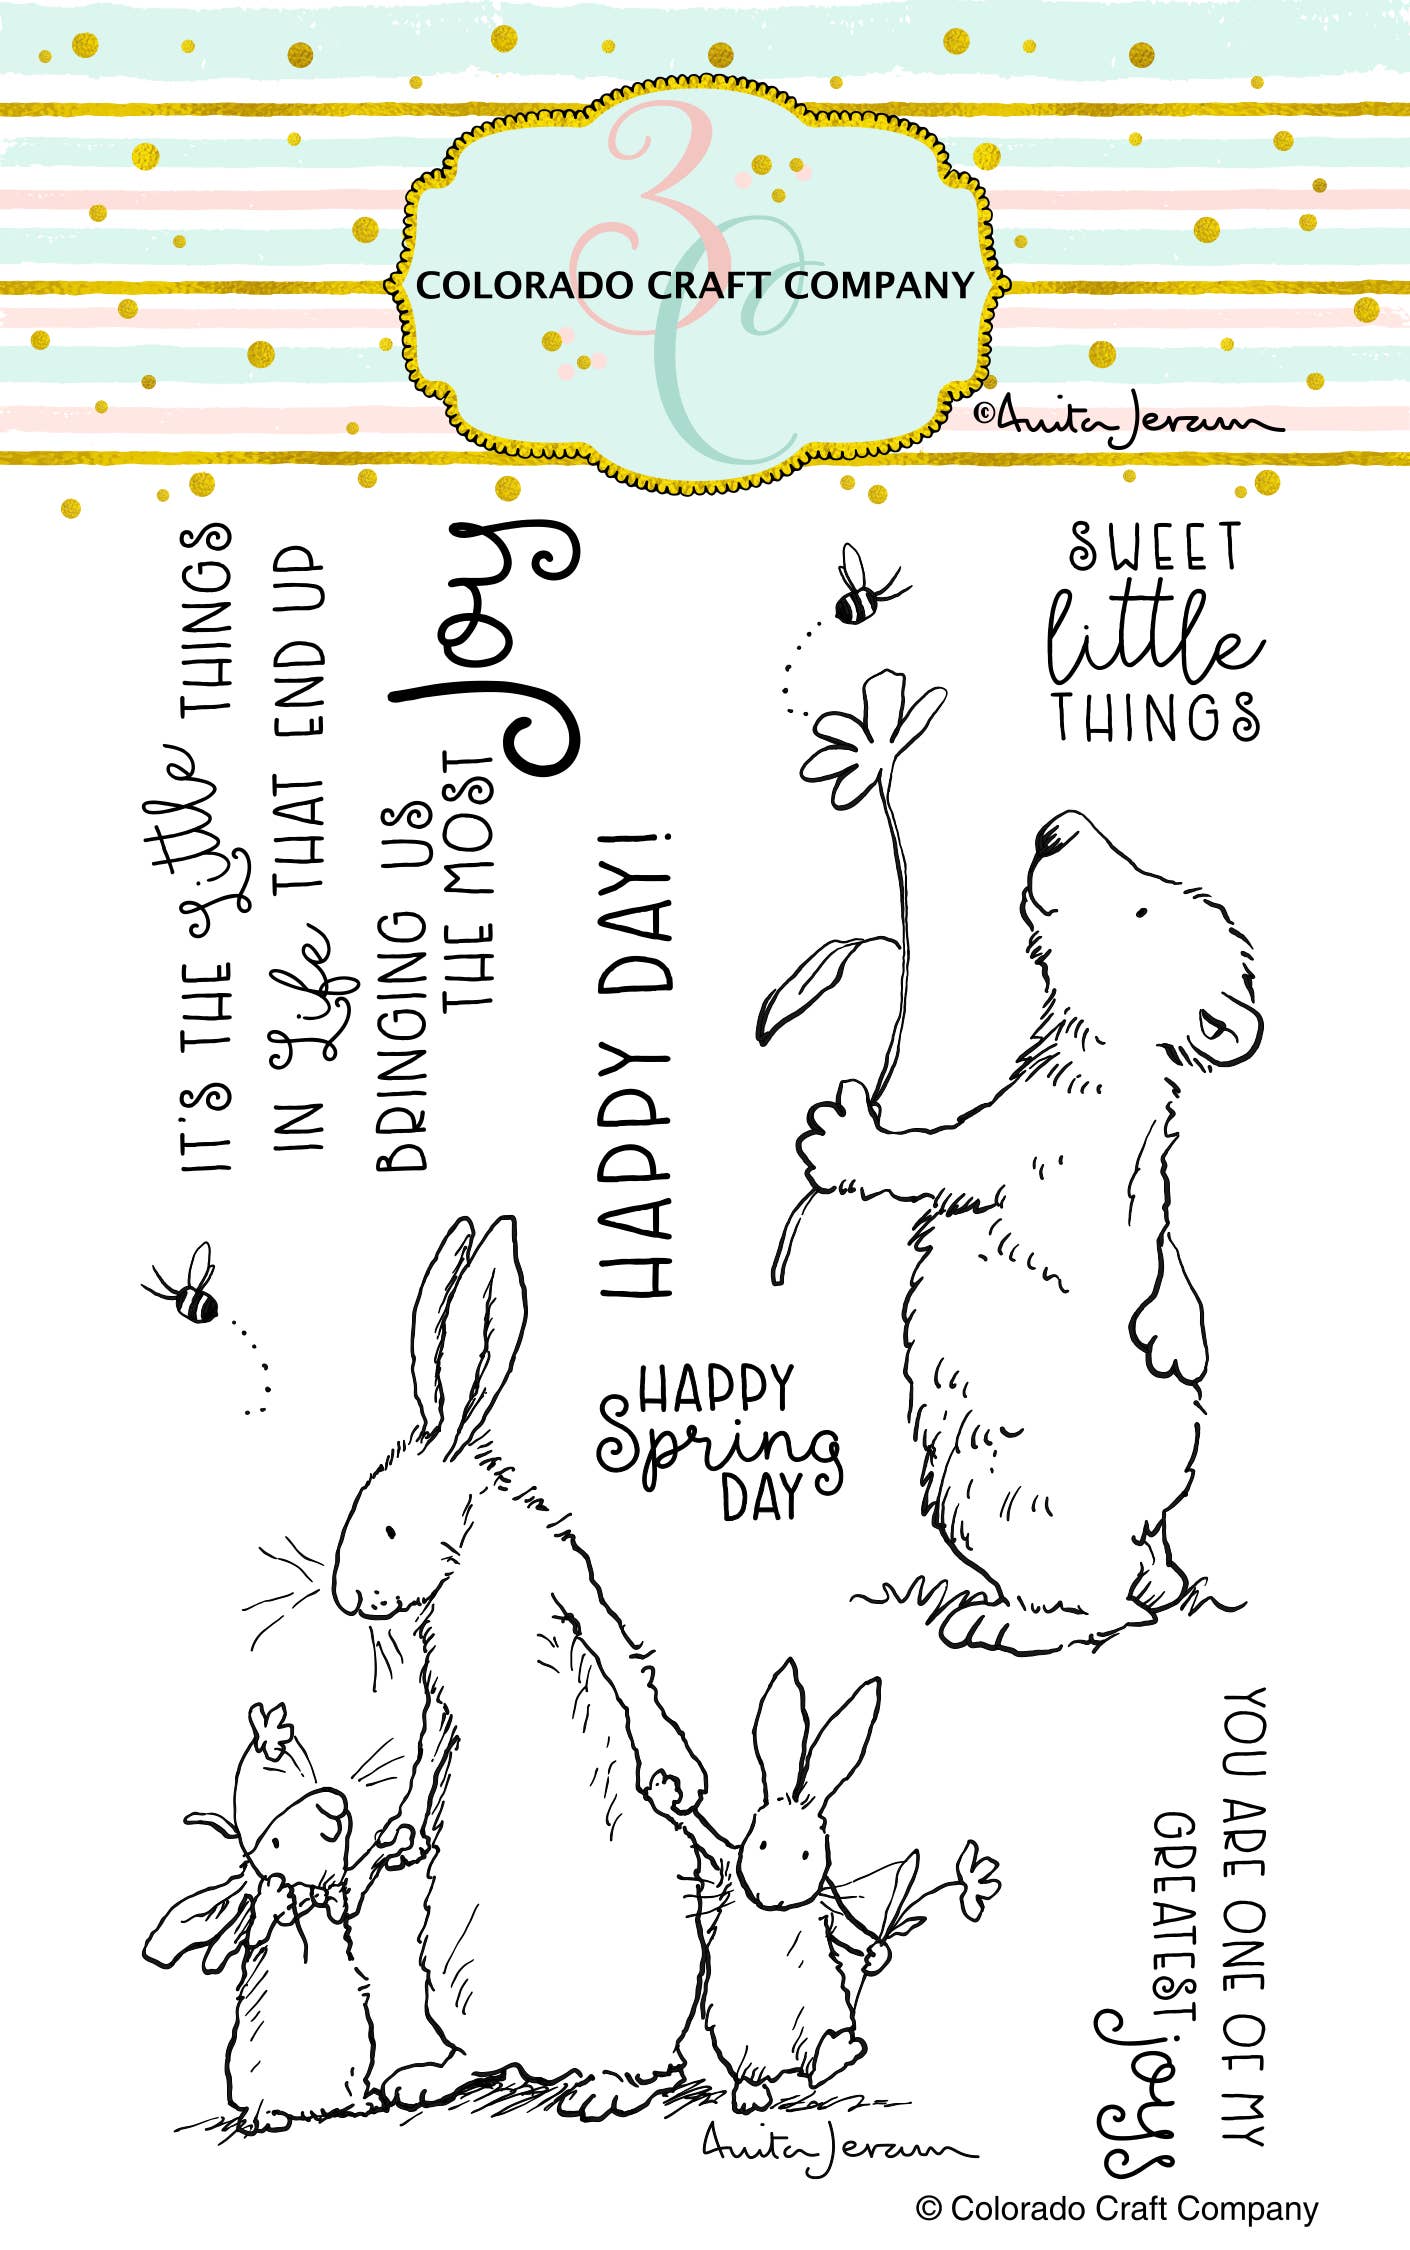 3C
COLORADO CRAFT COMPANY
©Anita Jeram
IT'S THE Little THINGS
IN Life THAT END UP
BRINGING US
THE MOST
Joy
SWEET
little
THINGS
HAPPY DAY!
HAPPY
Spring
DAY
YOU ARE ONE OF MY
GREATEST
joys
Anita Jeram
© Colorado Craft Company